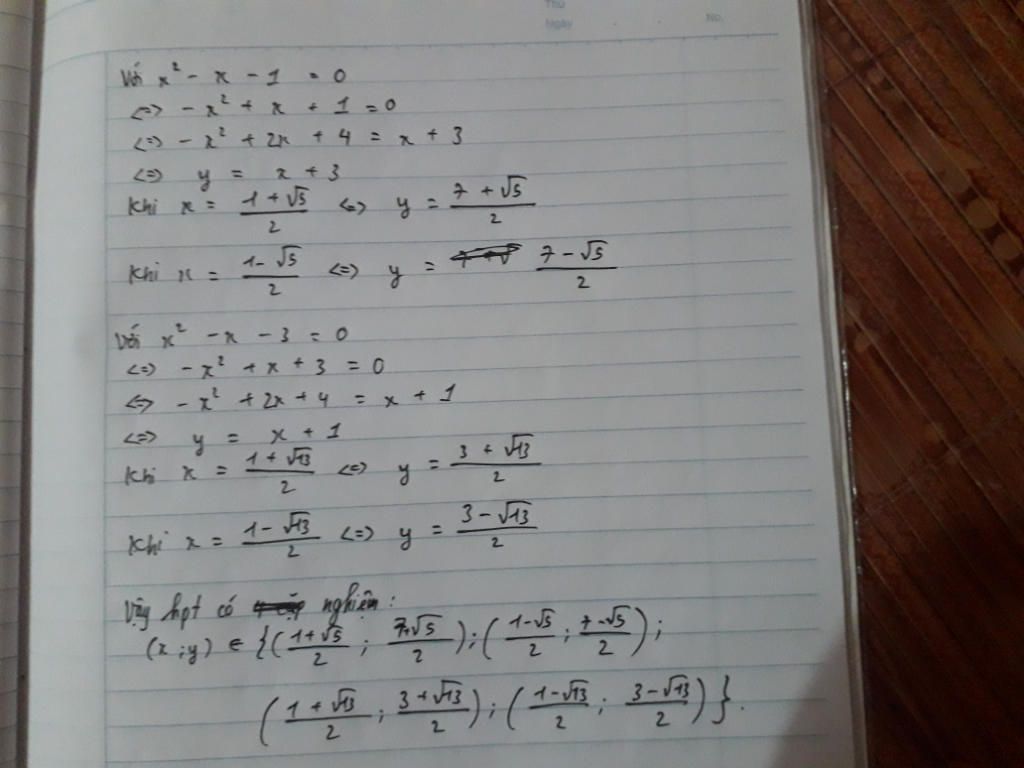 Thứ
Ngày . . No.
Với x² - x - 1 = 0
<=> -x² + x + 1 = 0
<=> -x² + 2x + 4 = x + 3
<=> y = x + 3
Khi x = (1 + √5)/2 <=> y = (7 + √5)/2
Khi x = (1 - √5)/2 <=> y = (7 - √5)/2
Với x² - x - 3 = 0
<=> -x² + x + 3 = 0
<=> -x² + 2x + 4 = x + 1
<=> y = x + 1
Khi x = (1 + √13)/2 <=> y = (3 + √13)/2
Khi x = (1 - √13)/2 <=> y = (3 - √13)/2
Vậy hpt có nghiệm :
(x ; y) ∈ {((1+√5)/2 ; (7+√5)/2) ; ((1-√5)/2 ; (7-√5)/2) ;
((1 + √13)/2 ; (3 + √13)/2) ; ((1-√13)/2 ; (3-√13)/2) }.